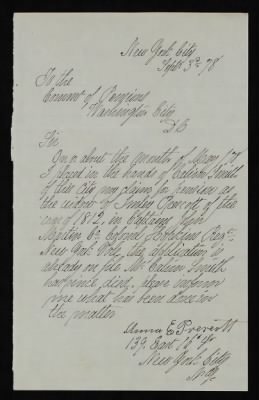 New York City
Sept 3d 78
To the
Commr of Pensions
Washington City
D.C
Sir
On or about the month of May
I placed in the hands of Calvin Smith
of this City my claim for pension as
the widow of of the
war of 1812, in Captain
Martin Co Colonel Regt
New York the application is
already on file Mr Calvin Smith
has since died, please inform
me what has been done in
the matter
Anna E Prevost
139 East St
New York City
N.Y.